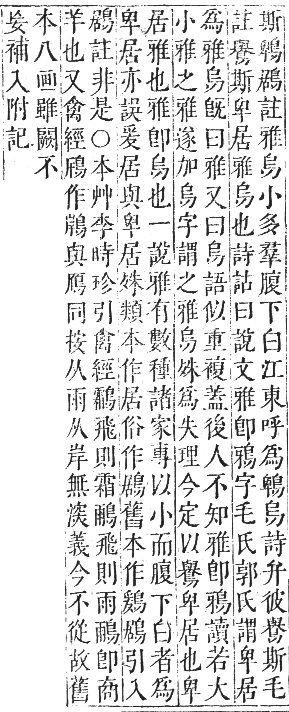 斯鵯鶋註雅烏小多羣腹下白江東呼爲鵯烏詩弁彼鸒斯毛
註鸒斯卑居雅烏也詩詁曰說文雅卽鴉字毛氏郭氏謂卑居
爲雅烏旣曰雅又曰烏語似重複蓋後人不知雅卽鴉讀若大
小雅之雅遂加烏字謂之雅烏殊爲失理今定以鸒卑居也卑
居雅也雅卽烏也一說雅有數種諸家專以小而腹下白者爲
卑居亦誤爰居與卑居殊類本作居俗作鶋舊本作鶢鶋引入
鶋註非是○本艸李時珍引禽經鸘飛則霜鸸飛則雨鸸卽商
羊也又禽經鳫作鴈與鴈同按从雨从岸無深義今不從故舊
本八畫雖闕不
妄補入附記